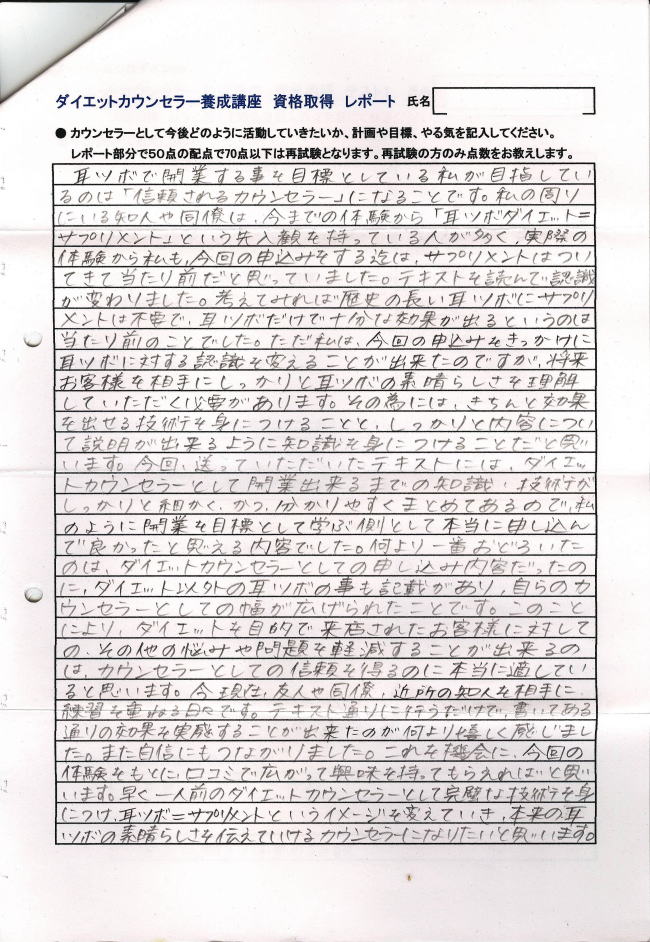 ダイエットカウンセラー養成講座 資格取得 レポート 氏名
● カウンセラーとして今後どのように活動していきたいか、計画や目標、やる気を記入してください。
レポート部分で50点の配点で70点以下は再試験となります。再試験の方のみ点数をお教えします。
耳ツボで開業する事を目標としている私が目指してい
るのは「信頼されるカウンセラー」になることです。私の周り
にいる知人や同僚は、今までの体験から「耳ツボダイエット=
サプリメント」という先入観を持っている人が多く、実際の
体験から私も、今回の申込みをする迄は、サプリメントはつい
てきて当たり前だと思っていました。テキストを読んで認識
が変わりました。考えてみれば歴史の長い耳ツボにサプリ
メントは不要で、耳ツボだけで十分な効果が出るというのは
当たり前のことでした。ただ私は、今回の申込みをきっかけに
耳ツボに対する認識を変えることが出来たのですが、将来
お客様を相手にしっかりと耳ツボの素晴らしさを理解
していただく必要があります。その為には、きちんと効果
を出せる技術を身につけることと、しっかりと内容につい
て説明が出来るように知識を身につけることだと思い
います。今回、送っていただいたテキストには、ダイエッ
トカウンセラーとして開業出来るまでの知識・技術が
しっかりと細かく、かつ、分かりやすくまとめてあるので、私
のように開業を目標として学ぶ側として本当に申し込ん
で良かったと思える内容でした。何より一番おどろいた
のは、ダイエットカウンセラーとしての申し込み内容だったの
に、ダイエット以外の耳ツボの事も記載があり、自らのカ
ウンセラーとしての幅が広げられたことです。このこと
により、ダイエットを目的で来店されたお客様に対して
の、その他の悩みや問題を軽減することが出来るの
は、カウンセラーとしての信頼を得るのに本当に適してい
ると思います。今現在、友人や同僚、近所の知人を相手に
練習を重ねる日々です。テキスト通りに行うだけで、書いてある
通りの効果を実感することが出来たのが何より嬉しく感じまし
た。また自信にもつながりました。これを機会に、今回の
体験をもとに口コミで広がって興味を持ってもらえればと思
います。早く一人前のダイエットカウンセラーとして完璧な技術を身
につけ、耳ツボ=サプリメントというイメージを変えていき、本来の耳
ツボの素晴らしさを伝えていけるカウンセラーになりたいと思います。